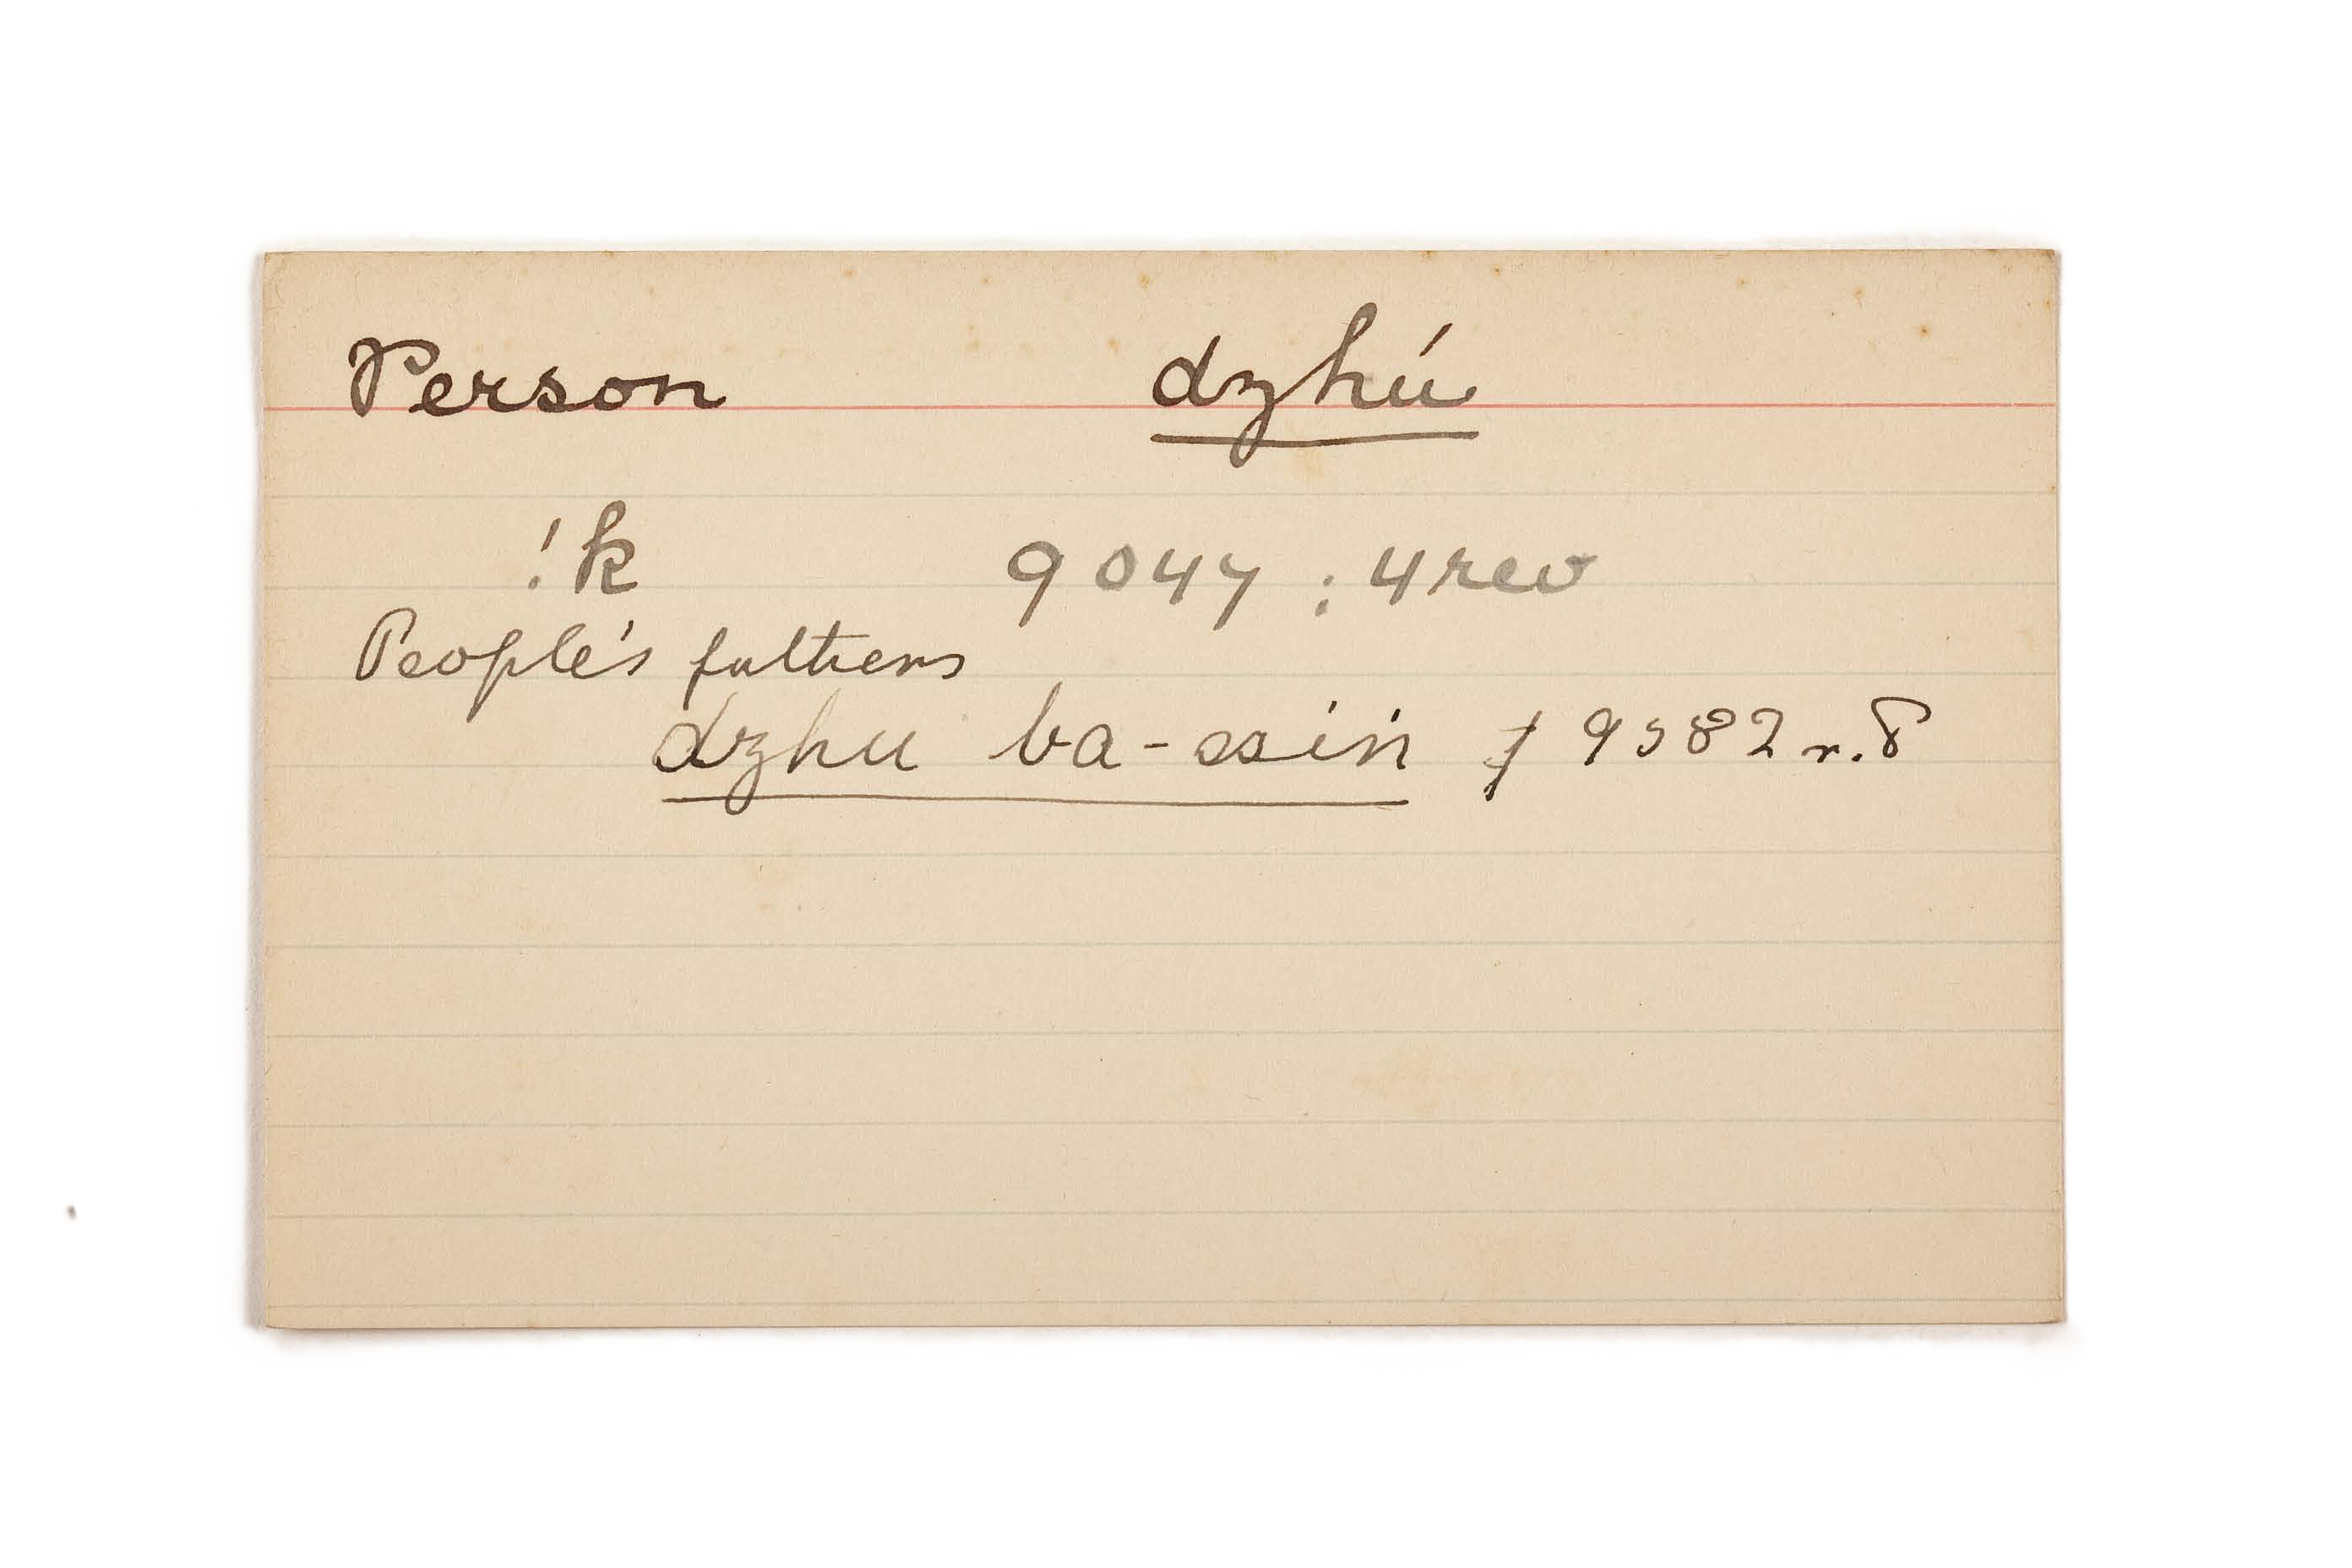 Person dzhú
!k 9047 : 4rev
People's fathers
dzhu ba-ssin ƒ 9582 r. 8